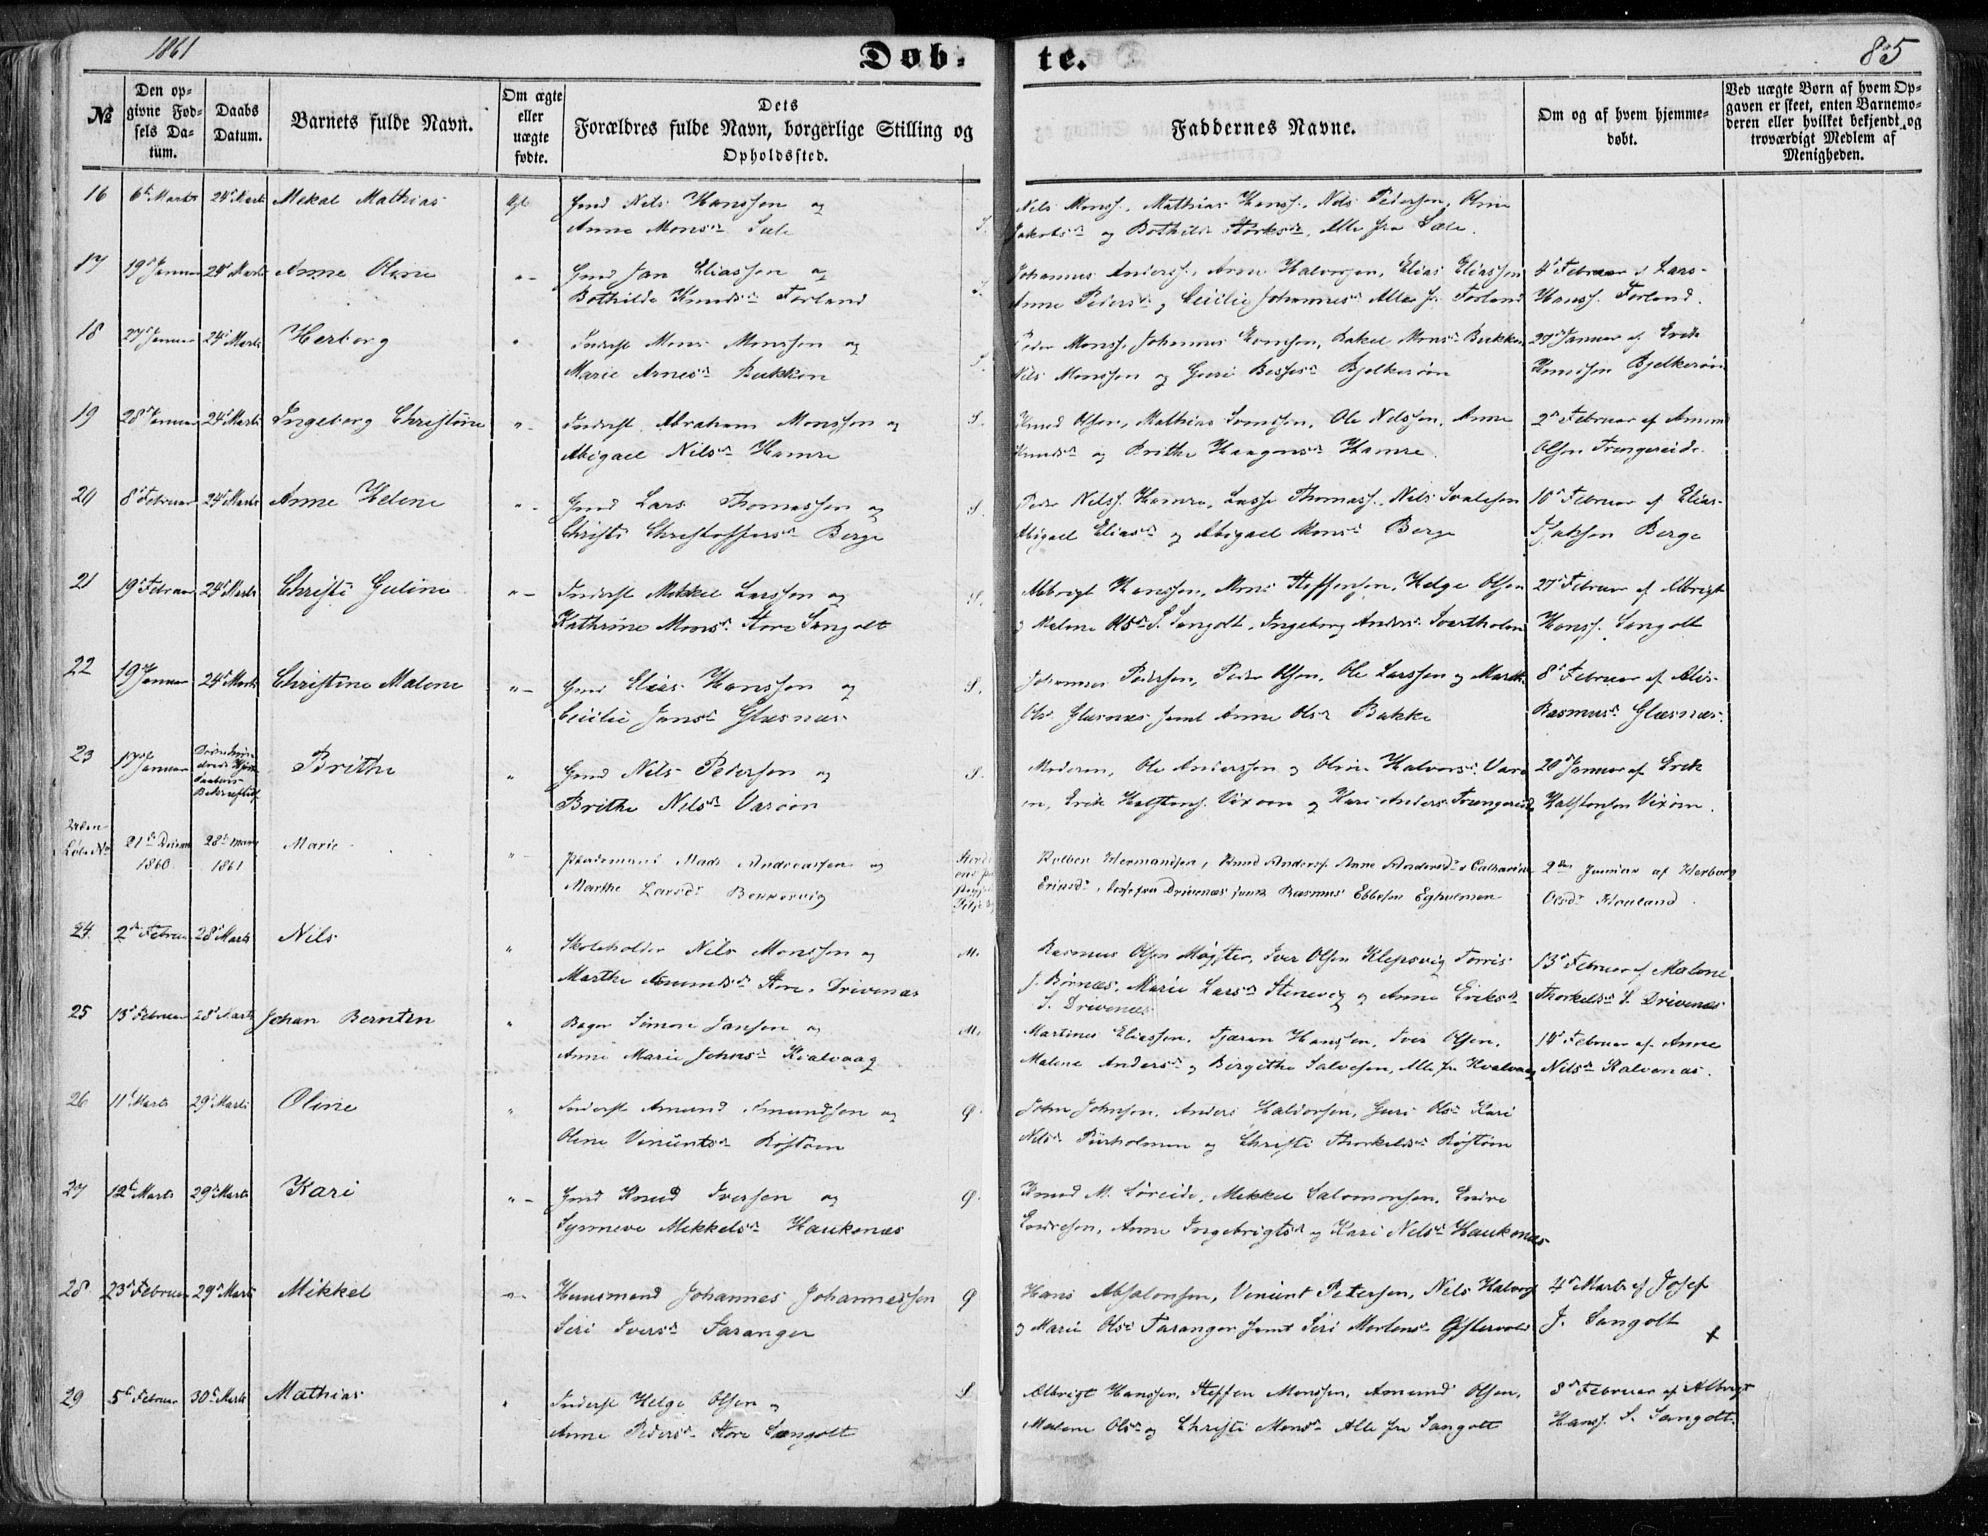 1861
Døb-
te.
85
№
Den op-
givne Fød-
sels Da-
tum.
Daabs
Datum.
Barnets fulde Navn.
Om ægte
eller
uægte
fødte.
Dets
Forældres fulde Navn, borgerlige Stilling og
Opholdssted.
Faddernes Navne.
Om og af hvem hjemme-
døbt.
Ved uægte Børn af hvem Op-
gaven er skeet, enten Barnemo-
deren eller hvilket bekjendt og
troværdigt Medlem af
Menigheden.
16 6t Marts 24d Marts Mekal Mathias Gmd Nils Hansson og
Anne Monsd. Sæle S.
Nils Monss., Mathias Hanss., Nils Pedersen, Oline
Jakobsd og Bothilde Storksd. Alle fra Sæle.
17 19d Januar 24d Marts Anne Oline " - Gmd Jan Eliassen og
Bothilde Knudsd Forland S.
Johannes Anderss., Arne Halvorsen, Elias Eliassen
Anne Pedersd og Cecilie Johannesd Alle fr Forland
4d Februar af Lars
Hanss. Forland.
18 27d Januar 24d Marts Herborg " Inderst Mons Monsson og
Marie Arnesd. Bukken S.
Peder Monss., Johannes, Rakel Monsd Bukken,
Nils Monssen og Guri Bessesd Bjelkerøen
27d Januar af Erik
Knudsen Bjelkerøen
19 28d Januar 24d Marts Ingeborg Christine " - Inderst Abraham Monsson og
Abigael Nilsd Hamre S.
Knud Olsen, Mathias Svendsen, Ole Nilsson, Anne
Knudsd og Brithe Haagensd Hamre.
2d Februar af Amund
Olsen Trengereide.
20 8d Februar 24d Marts Anne Helene " - Gmd Lars Thomassen og
Christi Christoffersd Berge S.
Peder Nilss. Hamre, Lasse Thomass., Nils
Abigael Eliasd og Abigael Monsd Berge
10d Februar af Elias
Berge
21 19d Februar 24d Marts Christi Guline " - Inderst Mikkel Larsson og
Kathrine Monsd. Store Sangolt S.
Albrigt Hanssen, Mons Steffensen, Helge Olsen
og Malene Olsd S. Sangolt, Ingeborg Andersd. Svartholm
27d Februar af Albrigt
Hanss. Sangolt
22 19d Januar 24d Marts Christine Malene " - Gmd Elias Hansson og
Cecilie Jansd Glæsnæs. S.
Johannes Pedersen, Peder Olsen, Ole Larssen og Marthe
Olsd Glæsnæs samt Anne Olsd Bakke
8d Februar af
Rasmusd. Glæsnæs.
23 17d Januar Brithe " Gmd Nils Pedersen og
Brithe Nilsd Varøen S.
Moderen, Ole Anderssen og Oline Halvorsd. Varø-
en, Erik Halstens. Vixøen og Kari Andersd. Trengereid
20d Januar af Erik
Halstensen Vixøen.
21d Decem
1860. 28d Marts
1861 Marie " - Mads Andreassen og
Marthe Larsd. Bekkervig
Kolben Hermandsen, Knud Anderss. Anne Andersd. Catharine
Drivenæs samt Rasmus Ebbesen Egholmen
2den Januar af Herborg
Olsd. Hauland.
24. 2d Februar 28d Marts Nils " Skoleholder Nils Monssen og
Marthe Amundsd. Store. Drivenæs M.
Rasmus Olsen Møgster, Iver Olsen Klepsvig, Torris
J. Børnæs, Marie Larsd Stenevig og Anne Eriksd
S. Drivenæs
13d Februar af Malene
Thorkelsd. S. Drivenæs
25 13d Februar 28d Marts Johan Berntin " Bager Simon Jansen og
Anne Marie Johnsd Kvalvaag M.
Martinus Eliassen, Tjæran Hanssen, Iver Olsen,
Malene Andersd. og Birgithe Salvesen, Alle fra Kvalvaag
14d Februar af Anne
Nilsd Kalvenæs.
26 11t Marts 29d Marts Oline " Inderst Amund Amundsen og
Oline Vincentsd Røstøen Ø.
John Johnsen, Anders Haldorsen, Guri Olsd Kari
Nilsd Purholmen og Christi Thorkelsd Røstøen
27 12t Marts 29d Marts Kari " - Gmd Knud Iversen og
Synneve Mikkelsd Haukenæs Ø.
Knud M. Søreide, Mikkel Salomonsen, Endre
Endresen, Anne Ingebrigtsd og Kari Nilsd Haukenæs
28 23d Februar 29d Marts Mikkel " - Huusmand Johannes Johannessen
Siri Iversd. Faranger Ø
Hans Absalonsen, Vincent Petersen, Nils Halvors.
og Marie Olsd Faranger samt Siri Mortensd. Østervold
4d Marts af Josef
J. Sangolt
29 5t Februar 30d Marts Mathias " Inderst Helge Olsen og
Anne Pedersd. Store Sangolt S.
Albrigt Hanssen, Steffen Monssen, Amund Olsen,
Malene Olsd og Christi Monsd Alle fra Sangolt
8d Februar af Albrigt
Hanss. S. Sangolt.